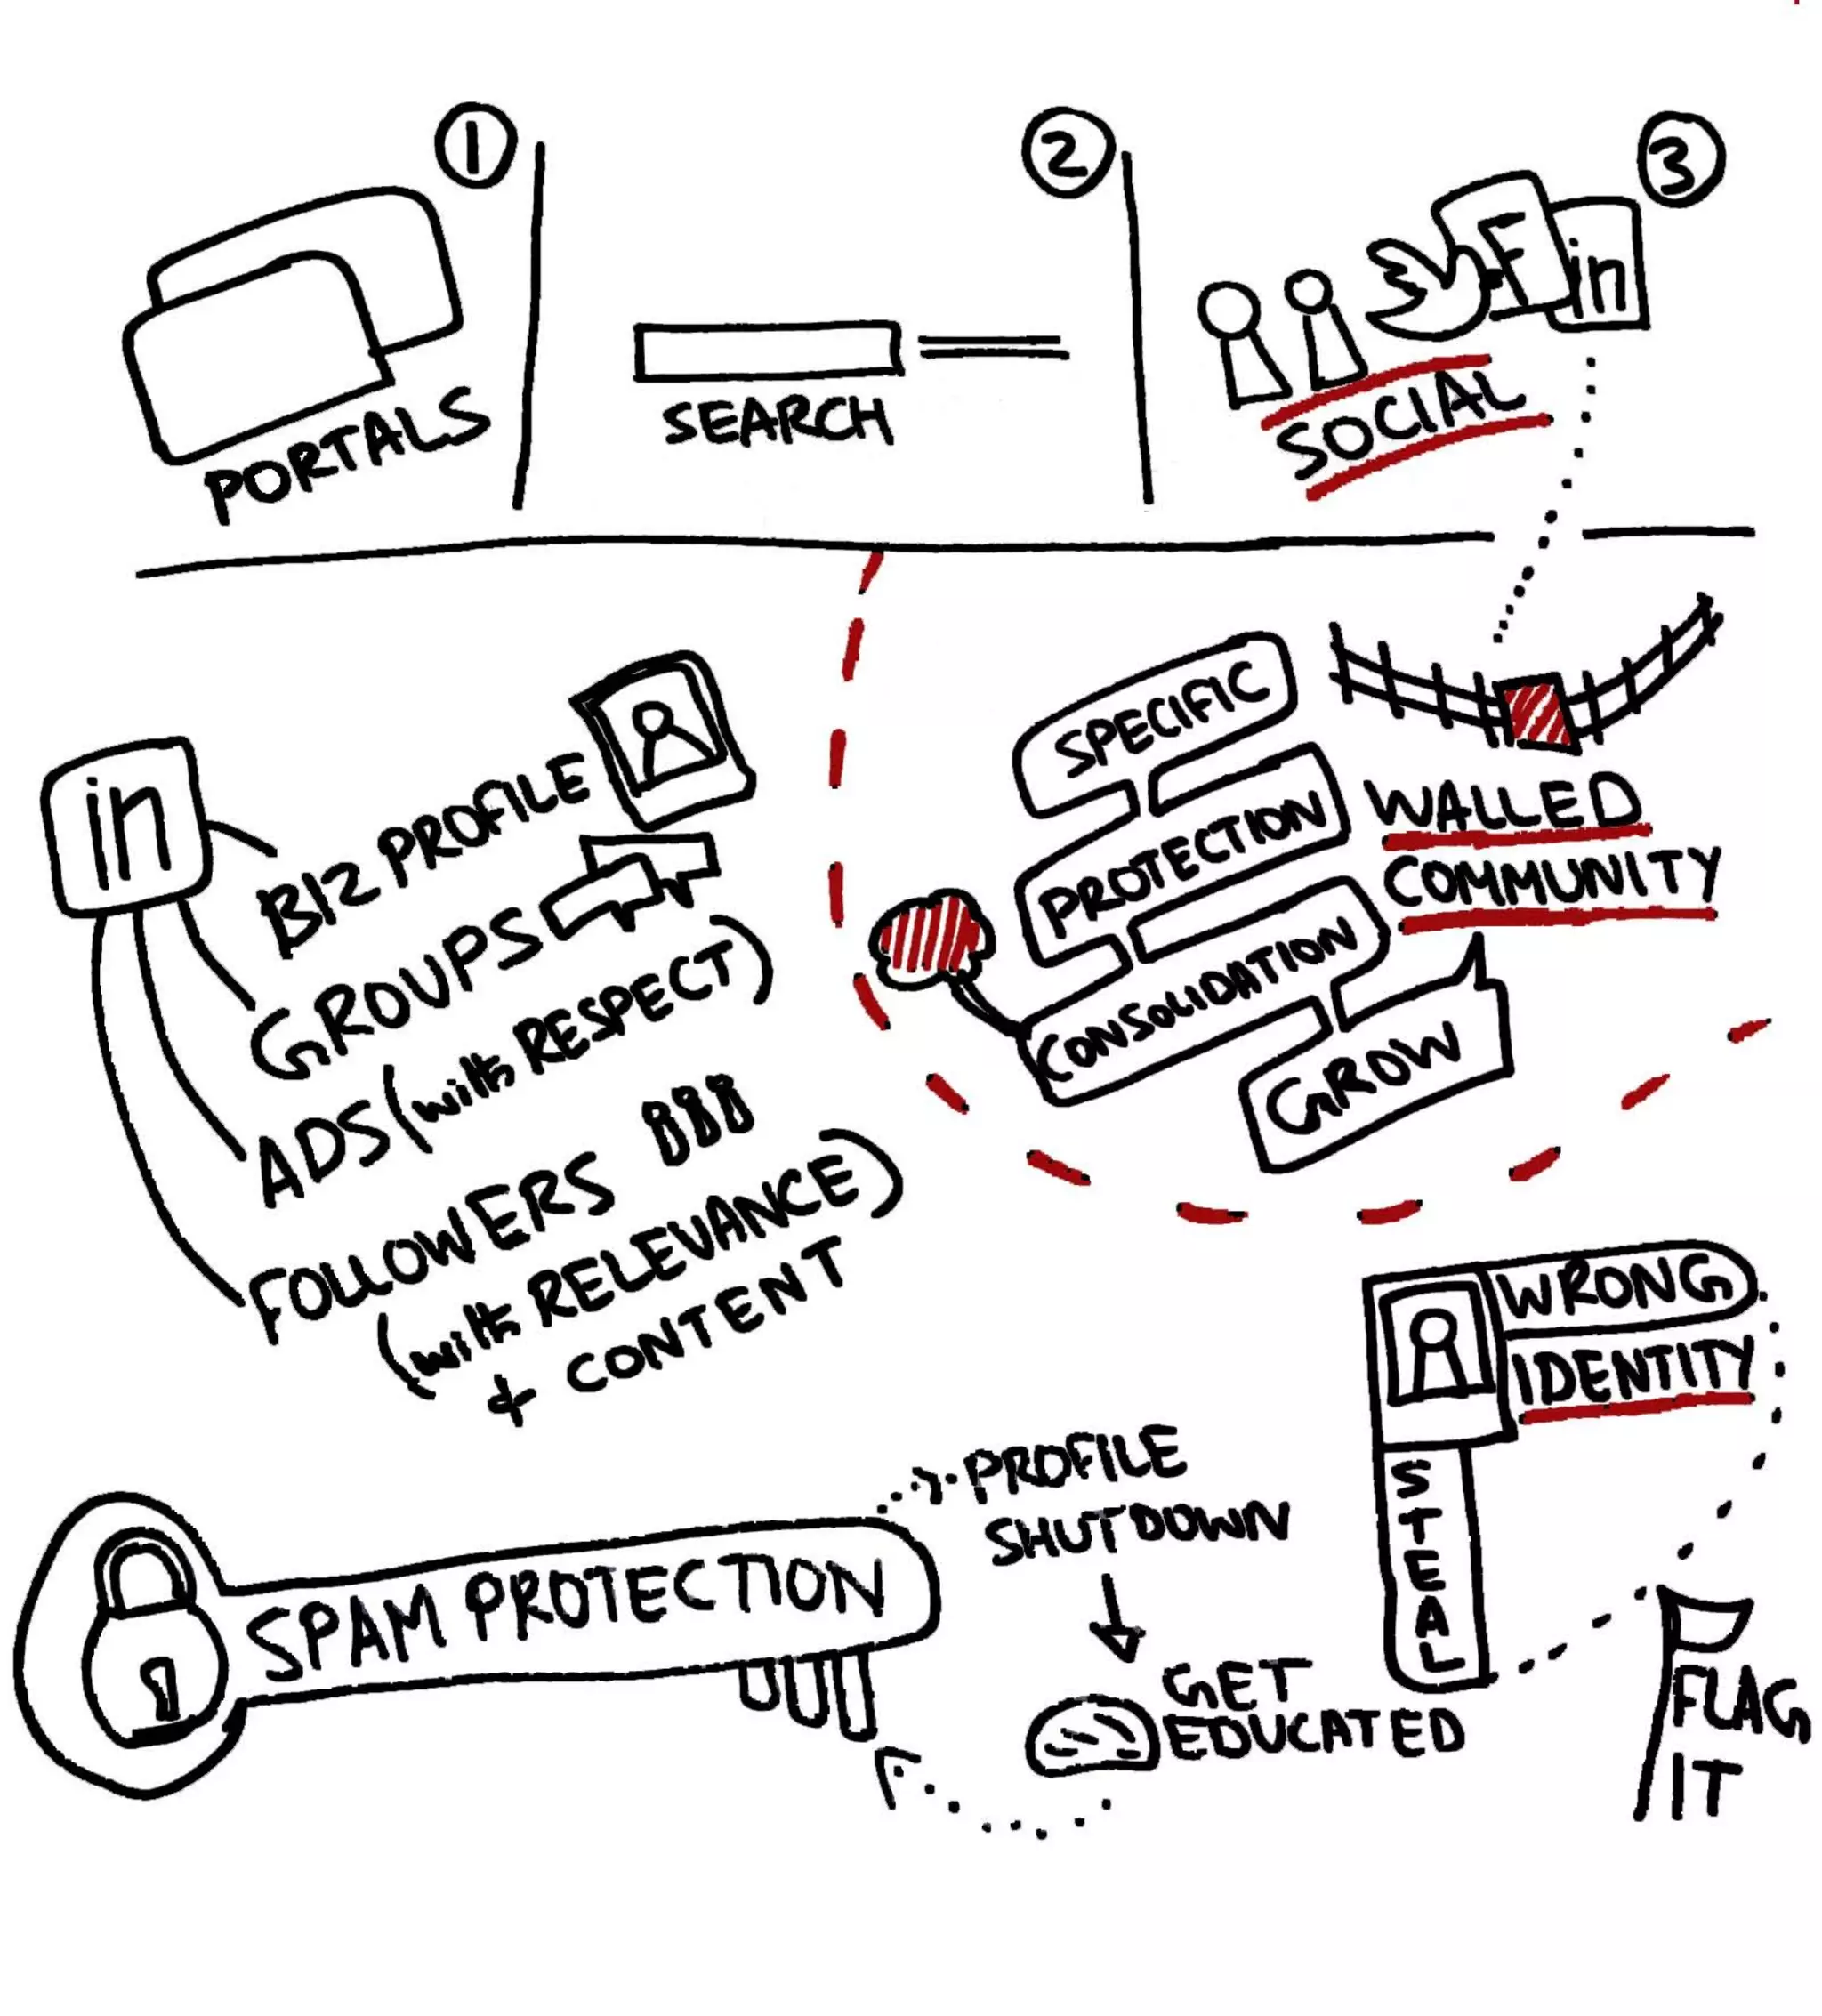 1
2
3
F
in
PORTALS
SEARCH
SOCIAL
in
BIZ PROFILE
GROUPS
ADS (with RESPECT)
FOLLOWERS
(with RELEVANCE)
+ CONTENT
SPECIFIC
PROTECTION
CONSOLIDATION
GROW
WALLED
COMMUNITY
WRONG
IDENTITY
STEAL
FLAG
IT
PROFILE
SHUTDOWN
GET
EDUCATED
SPAM PROTECTION